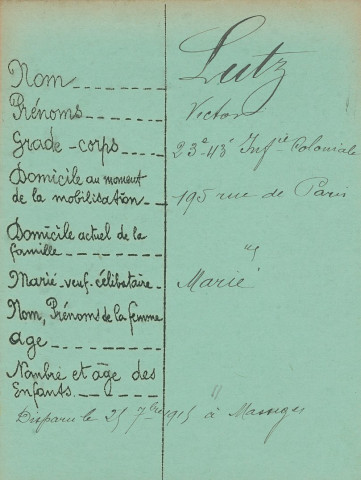 Nom Lutz
Prénoms Victor
Grade-corps 23e-43e Infrie Coloniale
Domicile au moment
de la mobilisation 195 rue de Paris
Domicile actuel de la
famille "
Marié-veuf-célibataire Marié
Nom, Prénoms de la femme
age
Nombre et âge des
Enfants "
Disparu le 25 7bre 1915 à Massiges